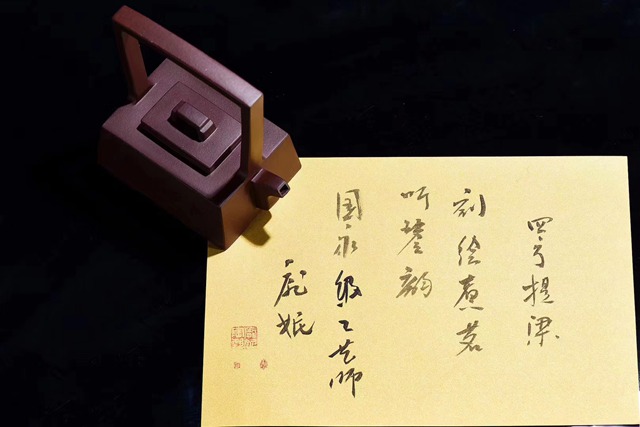 四方提梁
刻绘煮茗
听琴韵
国家级工艺师